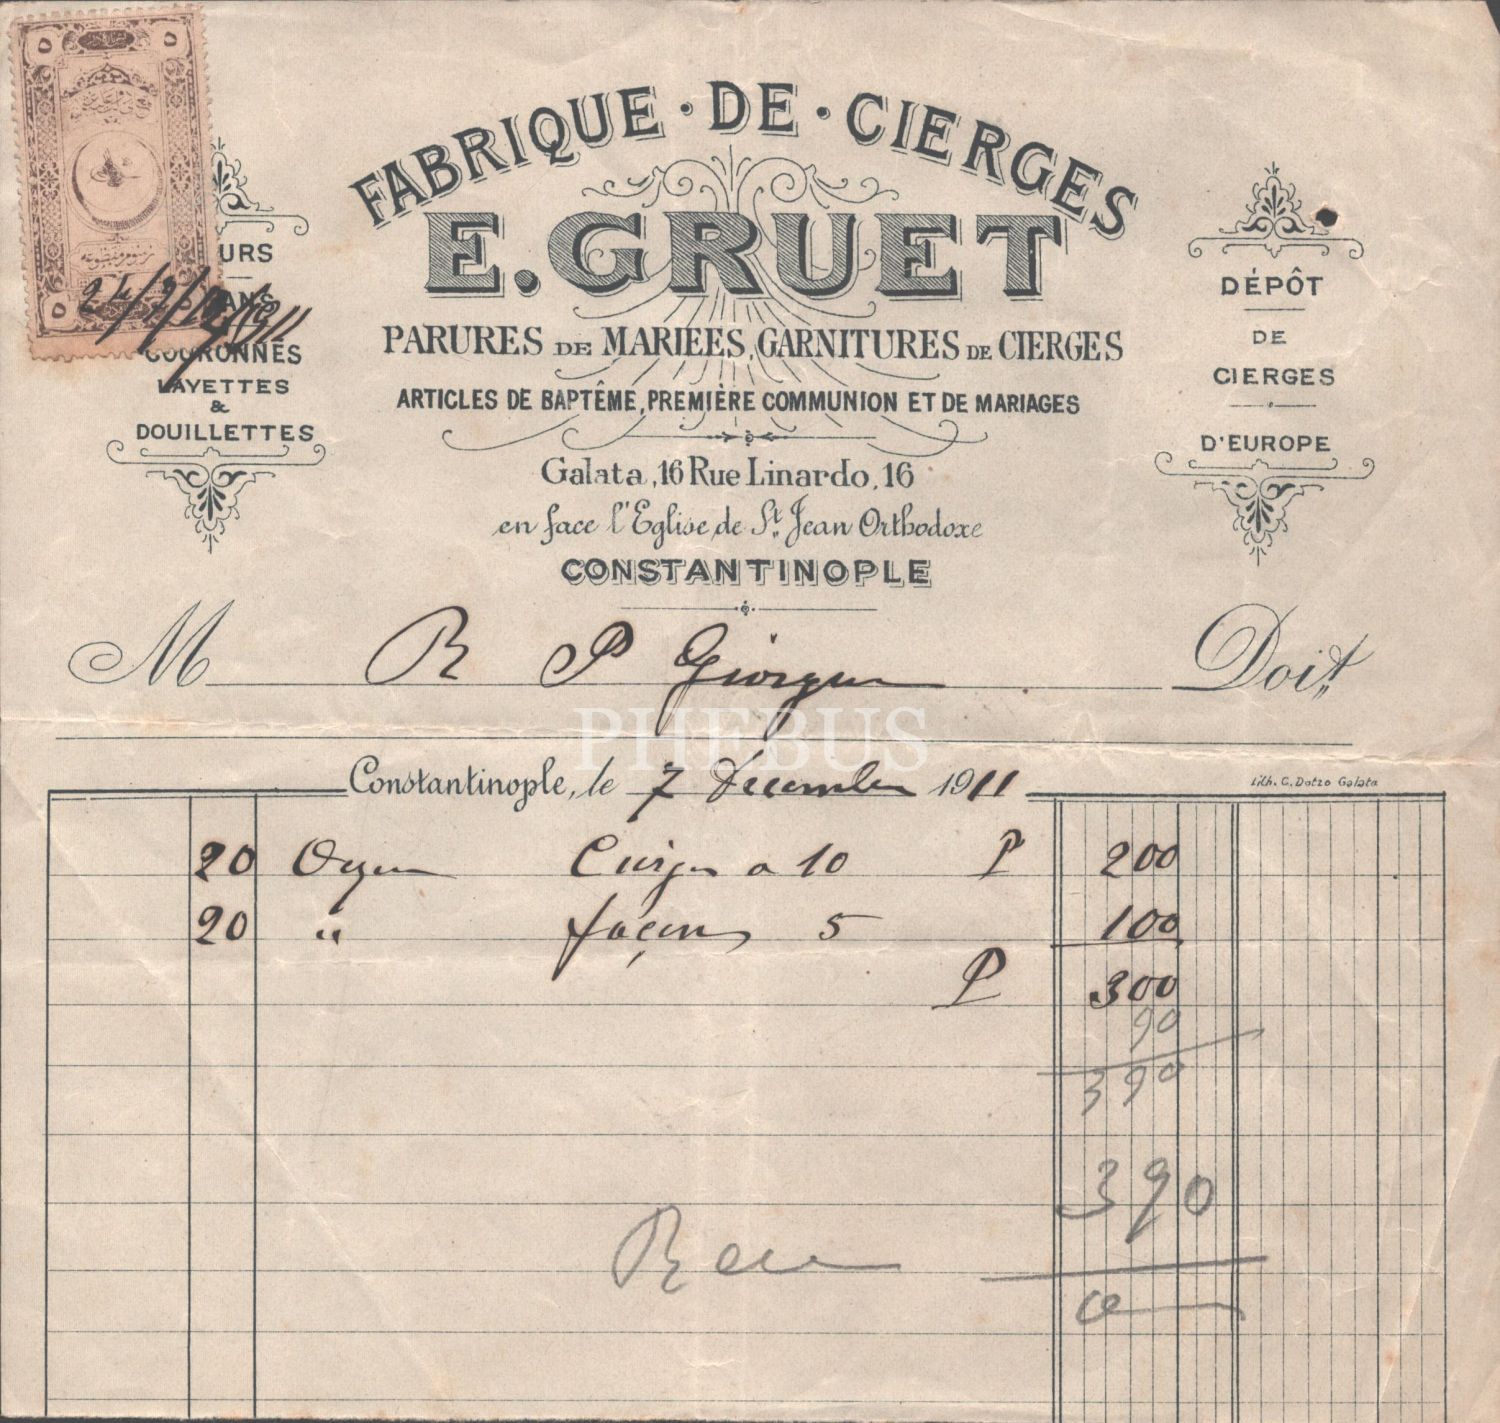 FABRIQUE · DE · CIERGES
E. GRUET
PARURES DE MARIEES, GARNITURES DE CIERGES
ARTICLES DE BAPTÊME, PREMIÈRE COMMUNION ET DE MARIAGES
Galata, 16 Rue Linardo, 16
en face l'Eglise de St. Jean Orthodoxe
CONSTANTINOPLE
URS
ANS
COURONNES
LAYETTES
&
DOUILLETTES
DÉPÔT
DE
CIERGES
D'EUROPE
M R P Doit
PHEBUS
Constantinople, le 7 Decembre 1911
Lith. C. Datzo Galata
20 Cierges a 10 P 200
20 " façon 5 100
P 300
90
390
390